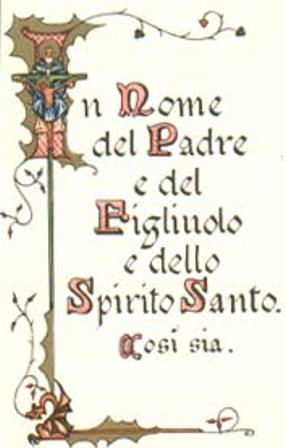 In Nome
del Padre
e del
Figliuolo
e dello
Spirito Santo.
Così sia.